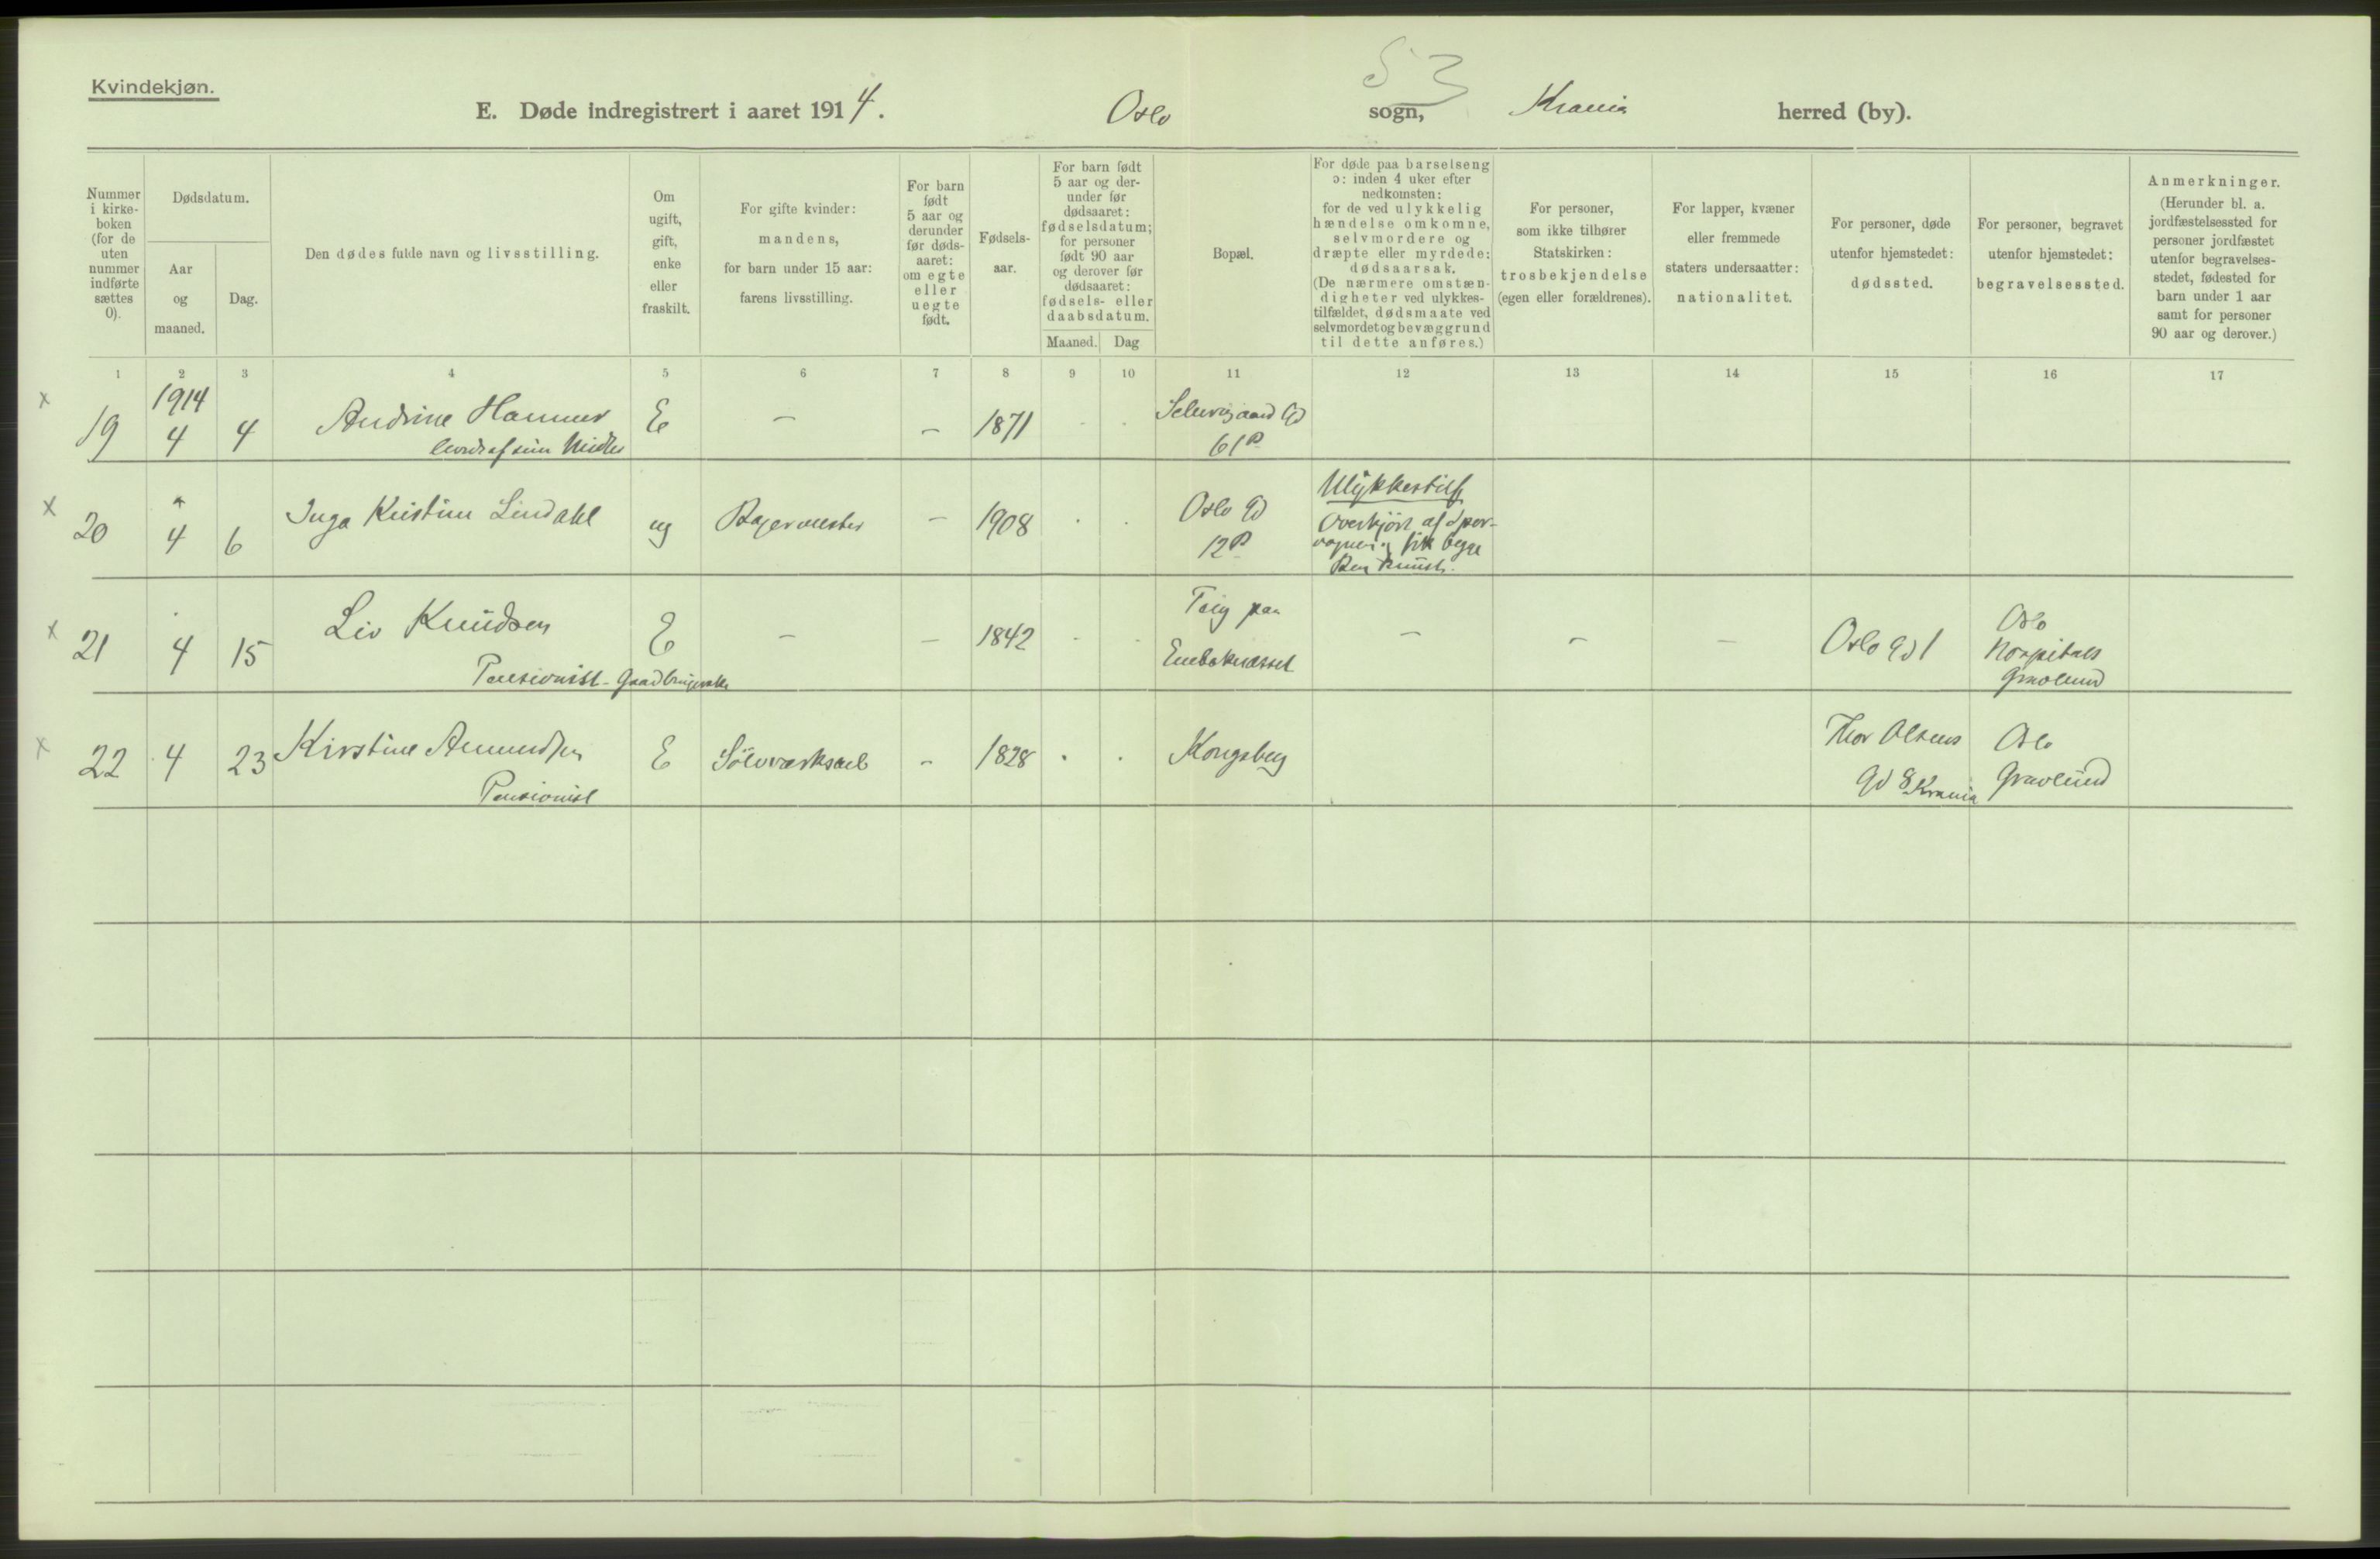 Kvindekjøn.
53
E. Døde indregistrert i aaret 1914. Oslo sogn, Krania herred (by).
Nummer i kirke-boken (for de uten nummer indførte sættes 0).
Dødsdatum.
Aar og maaned.
Dag.
Den dødes fulde navn og livsstilling.
Om ugift, gift, enke eller fraskilt.
For gifte kvinder: mandens, for barn under 15 aar: farens livsstilling.
For barn født 5 aar og derunder før døds-aaret: om egte eller uegte født.
Fødsels-aar.
For barn født 5 aar og der-under før dødsaaret: fødselsdatum; for personer født 90 aar og derover før dødsaaret: fødsels- eller daabsdatum.
Maaned. Dag
Bopæl.
For døde paa barselseng ɔ: inden 4 uker efter nedkomsten: for de ved ulykkelig hændelse omkomne, selvmordere og dræpte eller myrdede: dødsaarsak. (De nærmere omstæn-digheter ved ulykkes-tilfældet, dødsmaate ved selvmordet og bevæggrund til dette anføres.)
For personer, som ikke tilhører Statskirken: trosbekjendelse (egen eller forældrenes).
For lapper, kvæner eller fremmede staters undersaatter: nationalitet.
For personer, døde utenfor hjemstedet: dødssted.
For personer, begravet utenfor hjemstedet: begravelsessted.
Anmerkninger. (Herunder bl. a. jordfæstelsessted for personer jordfæstet utenfor begravelses-stedet, fødested for barn under 1 aar samt for personer 90 aar og derover.)
1 2 3 4 5 6 7 8 9 10 11 12 13 14 15 16 17
x 19 1914 4 4 Andrine Hammer E – – 1871 Gd
61
x 20 4 6 Inga Kristine Lindahl ug Bagermester – 1908 Oslo Gd
12
Ulykkestilf
Overkjørt af Spor-
vognen og fik begge
Ben knust.
x 21 4 15 Liv Knudsen E – – 1842 – – – Oslo Gd 1 Oslo
Hospitals
Gravlund
Pensionist
x 22 4 23 Kirstine Amundsen E – 1828 Kongsberg Thor Olsens
Gd 8 Krania
Oslo
Gravlund
Pensionist